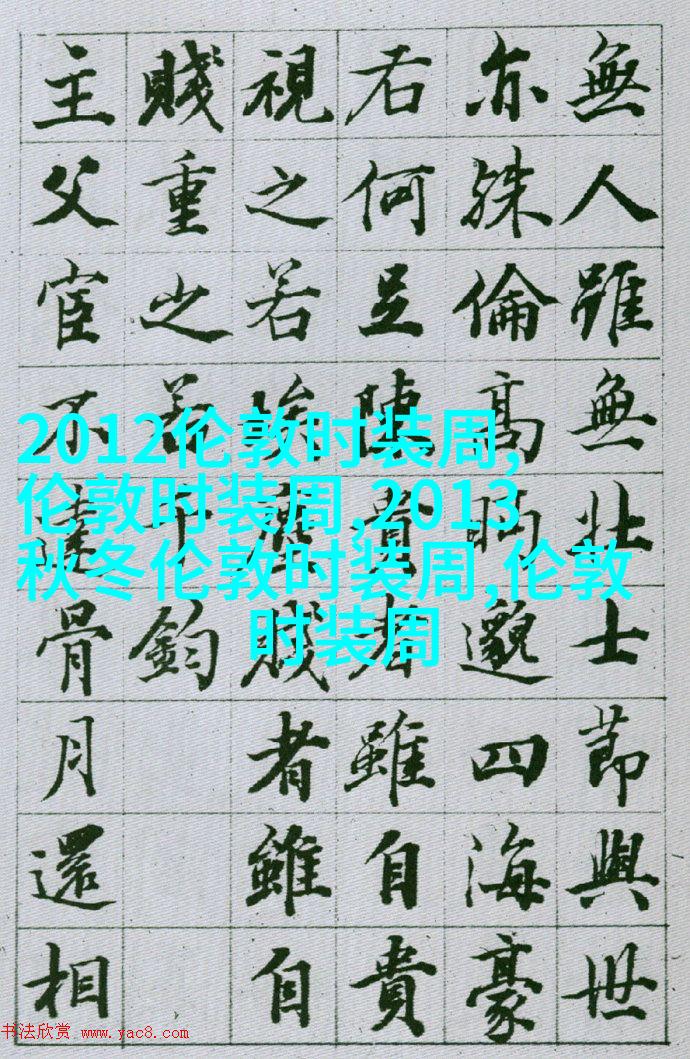 無人雖無壯士節與世
亦殊倫高眄邈四海豪
右何足陳貴者雖自貴
視之若埃塵賤者雖自
賤重之若千鈞
主父宦不達骨月還相
2012伦敦时装周,
伦敦时装周,2013
秋冬伦敦时装周,伦敦
时装周
书法欣赏 www.yac8.com